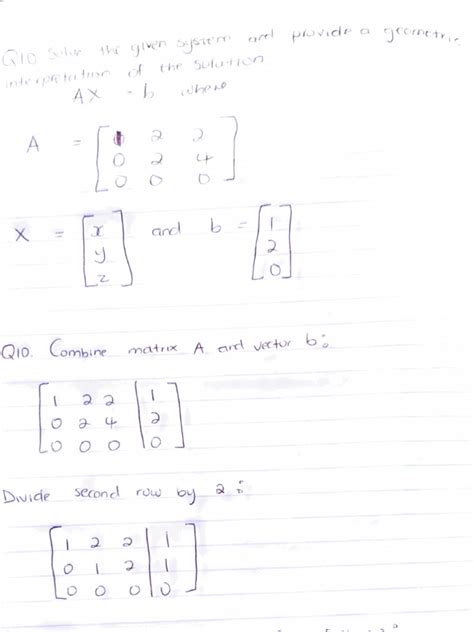 Q10 Solve the given system and provide a geometric
interpretation of the solution
AX = b where
A = [ 1 2 2
0 2 4
0 0 0 ]
X = [ x
y
z ] and b = [ 1
2
0 ]
Q10. Combine matrix A and vector b:
[ 1 2 2 | 1
0 2 4 | 2
0 0 0 | 0 ]
Divide second row by 2:
[ 1 2 2 | 1
0 1 2 | 1
0 0 0 | 0 ]